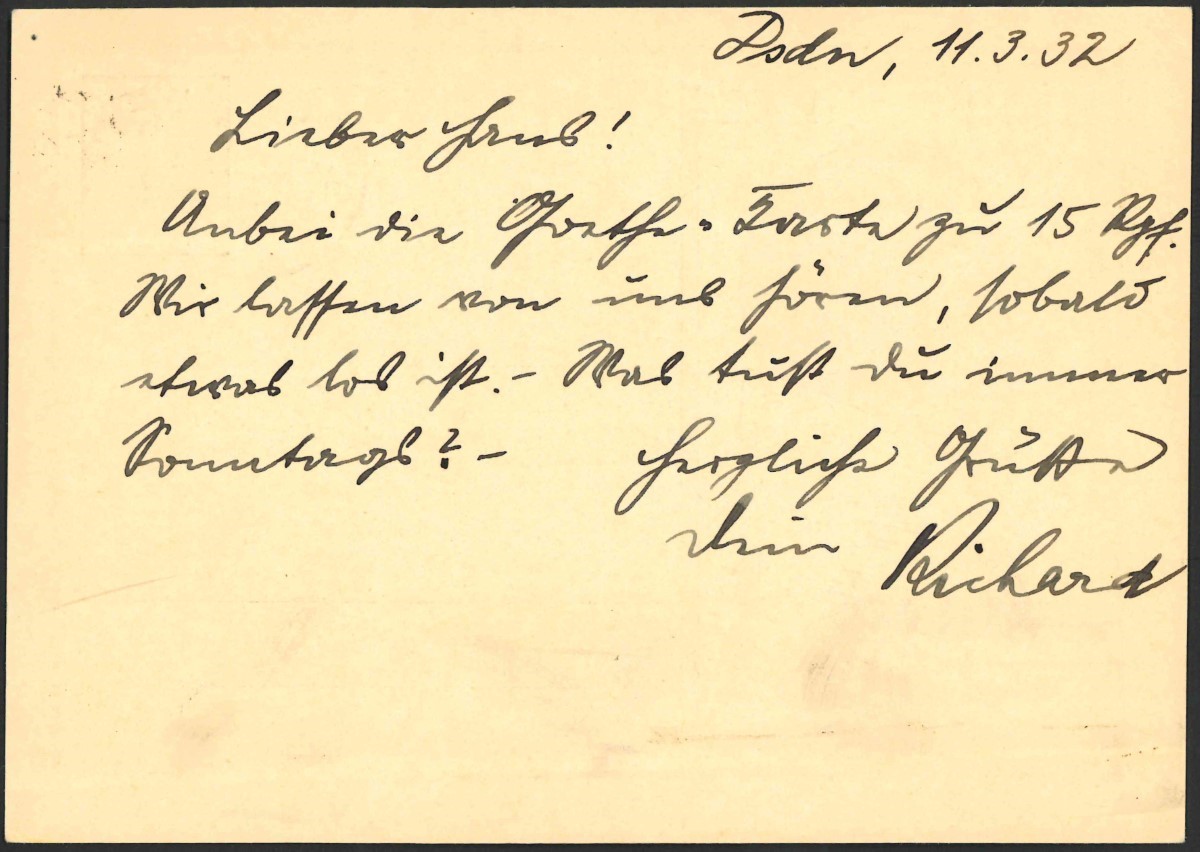 Dsdn, 11.3.32
Lieber Hans!
Anbei die Goethe-Karte zu 15 Rpf.
Wir lassen von uns hören, sobald
etwas los ist. – Was tust du immer
Sonntags? –   Herzliche Grüße
Dein Richard